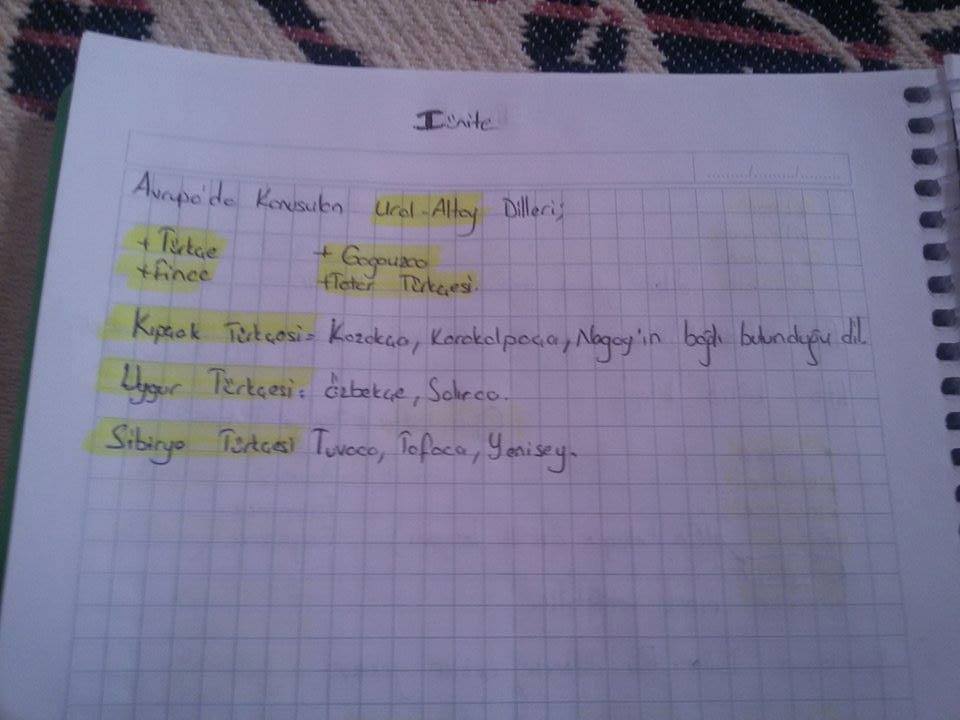 I Ünite
Avrupa'da Konuşulan Ural-Altay Dilleri;
+ Türkçe + Gagouzca
+ Fince + Tatar Türkçesi.
Kıpçak Türkçesi = Kazakça, Karakalpaça, Nogay'in bağlı bulunduğu dil.
Uygur Türkçesi: Özbekçe, Salırca.
Sibirya Türkçesi Tuvaca, Tofaca, Yenisey.